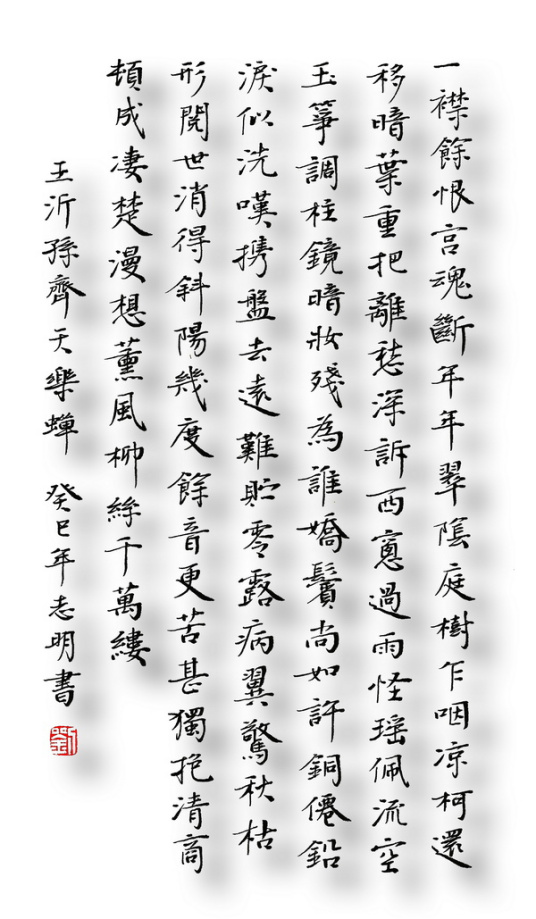 一襟餘恨宮魂斷年年翠陰庭樹乍咽凉柯還
移暗葉重把離愁深訴西窓過雨怪瑶佩流空
玉筝調柱鏡暗妝殘為誰嬌鬢尚如許銅僊鉛
淚似洗嘆携盤去遠難貯零露病翼驚秋枯
形閱世消得斜陽幾度餘音更苦甚獨抱清商
頓成凄楚漫想薰風柳絲千萬縷
王沂孫齊天樂蟬 癸巳年志明書
劉